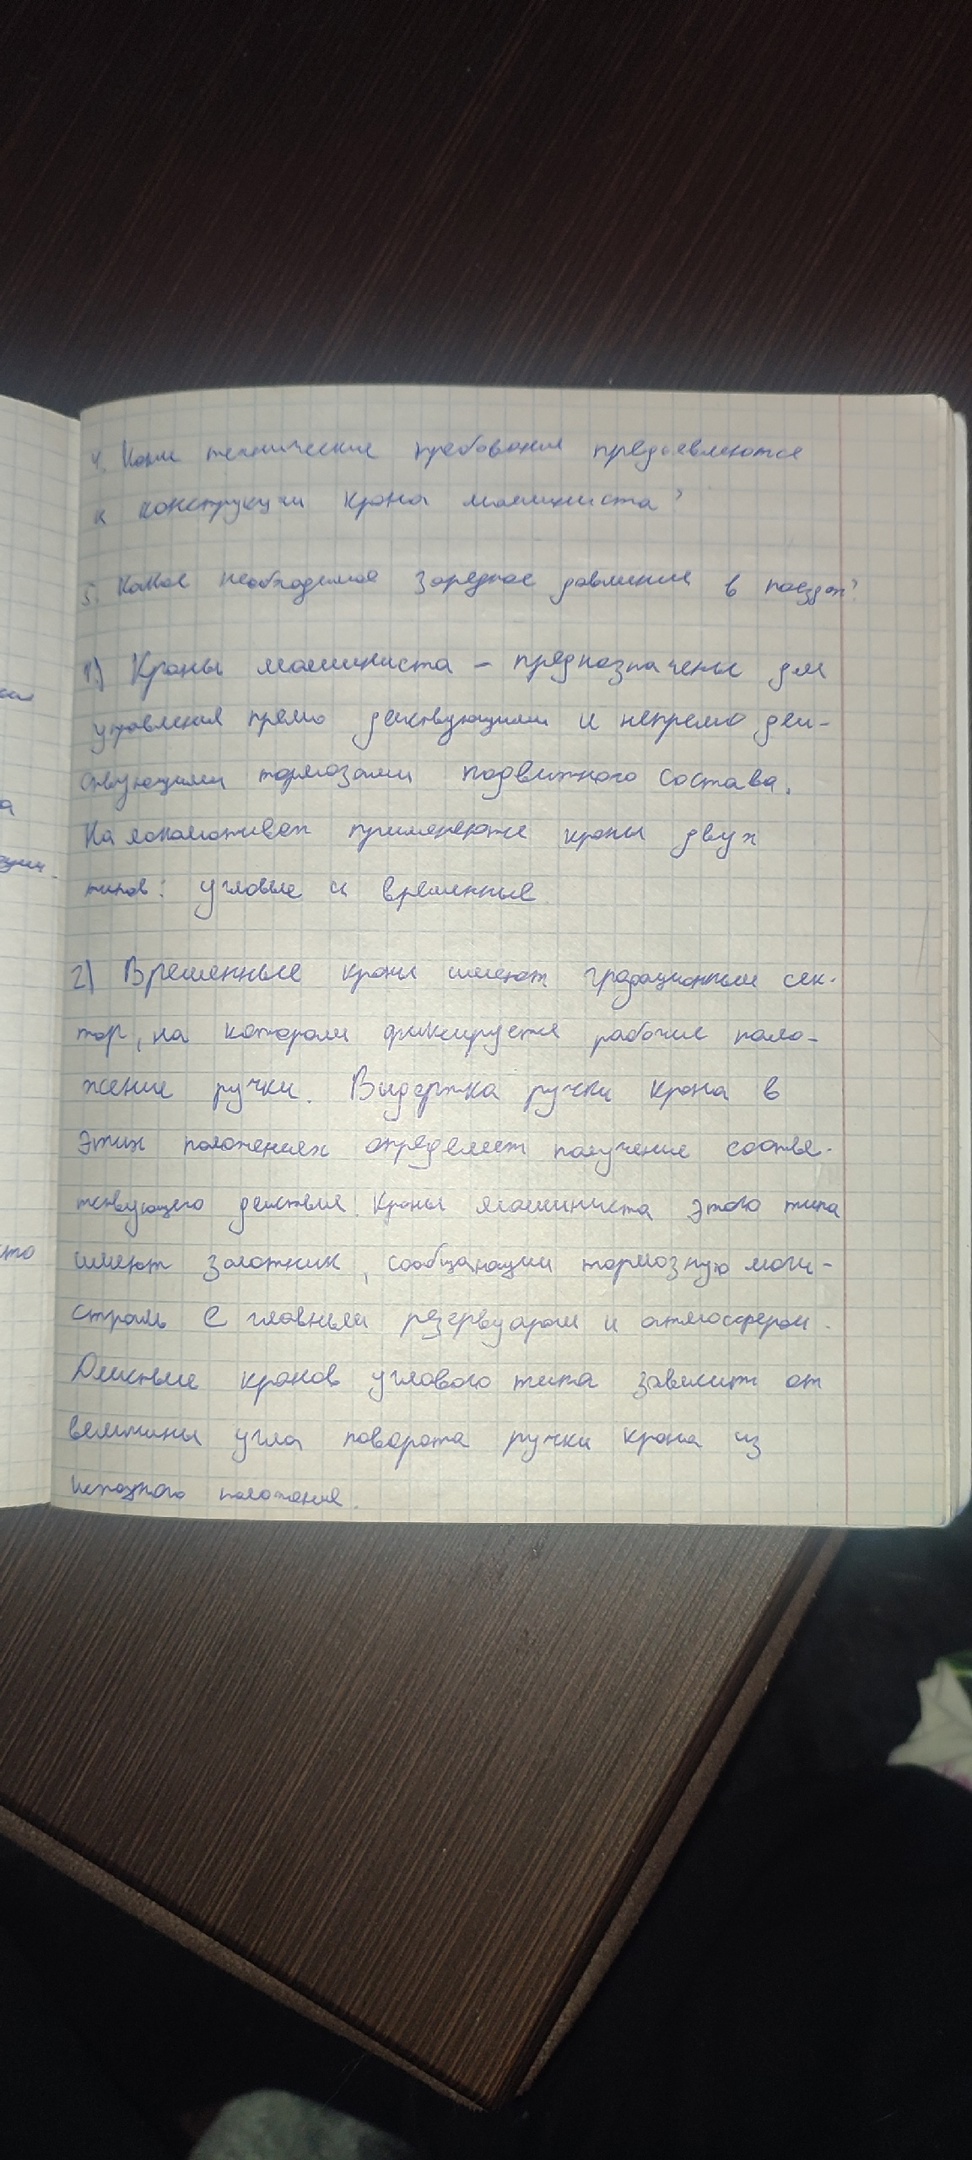 4. Какие технические требования предъявляются
к конструкции крана машиниста?
5. Какое необходимое зарядное давление в поездах?
1) Краны машиниста – предназначены для
управления прямо действующими и непрямо дей-
ствующими тормозами подвижного состава.
На локомотивах применяются краны двух
типов: угловые и временные
2) Временные краны имеют градационный сек-
тор, на котором фиксируется рабочие поло-
жение ручки. Выдержка ручки крана в
этих положениях определяет получение соотве-
тствующего действия. Краны машиниста этого типа
имеют золотник, сообщающий тормозную маги-
страль с главным резервуаром и атмосферой.
Действие кранов углового типа зависит от
величины угла поворота ручки крана из
исходного положения.
сто